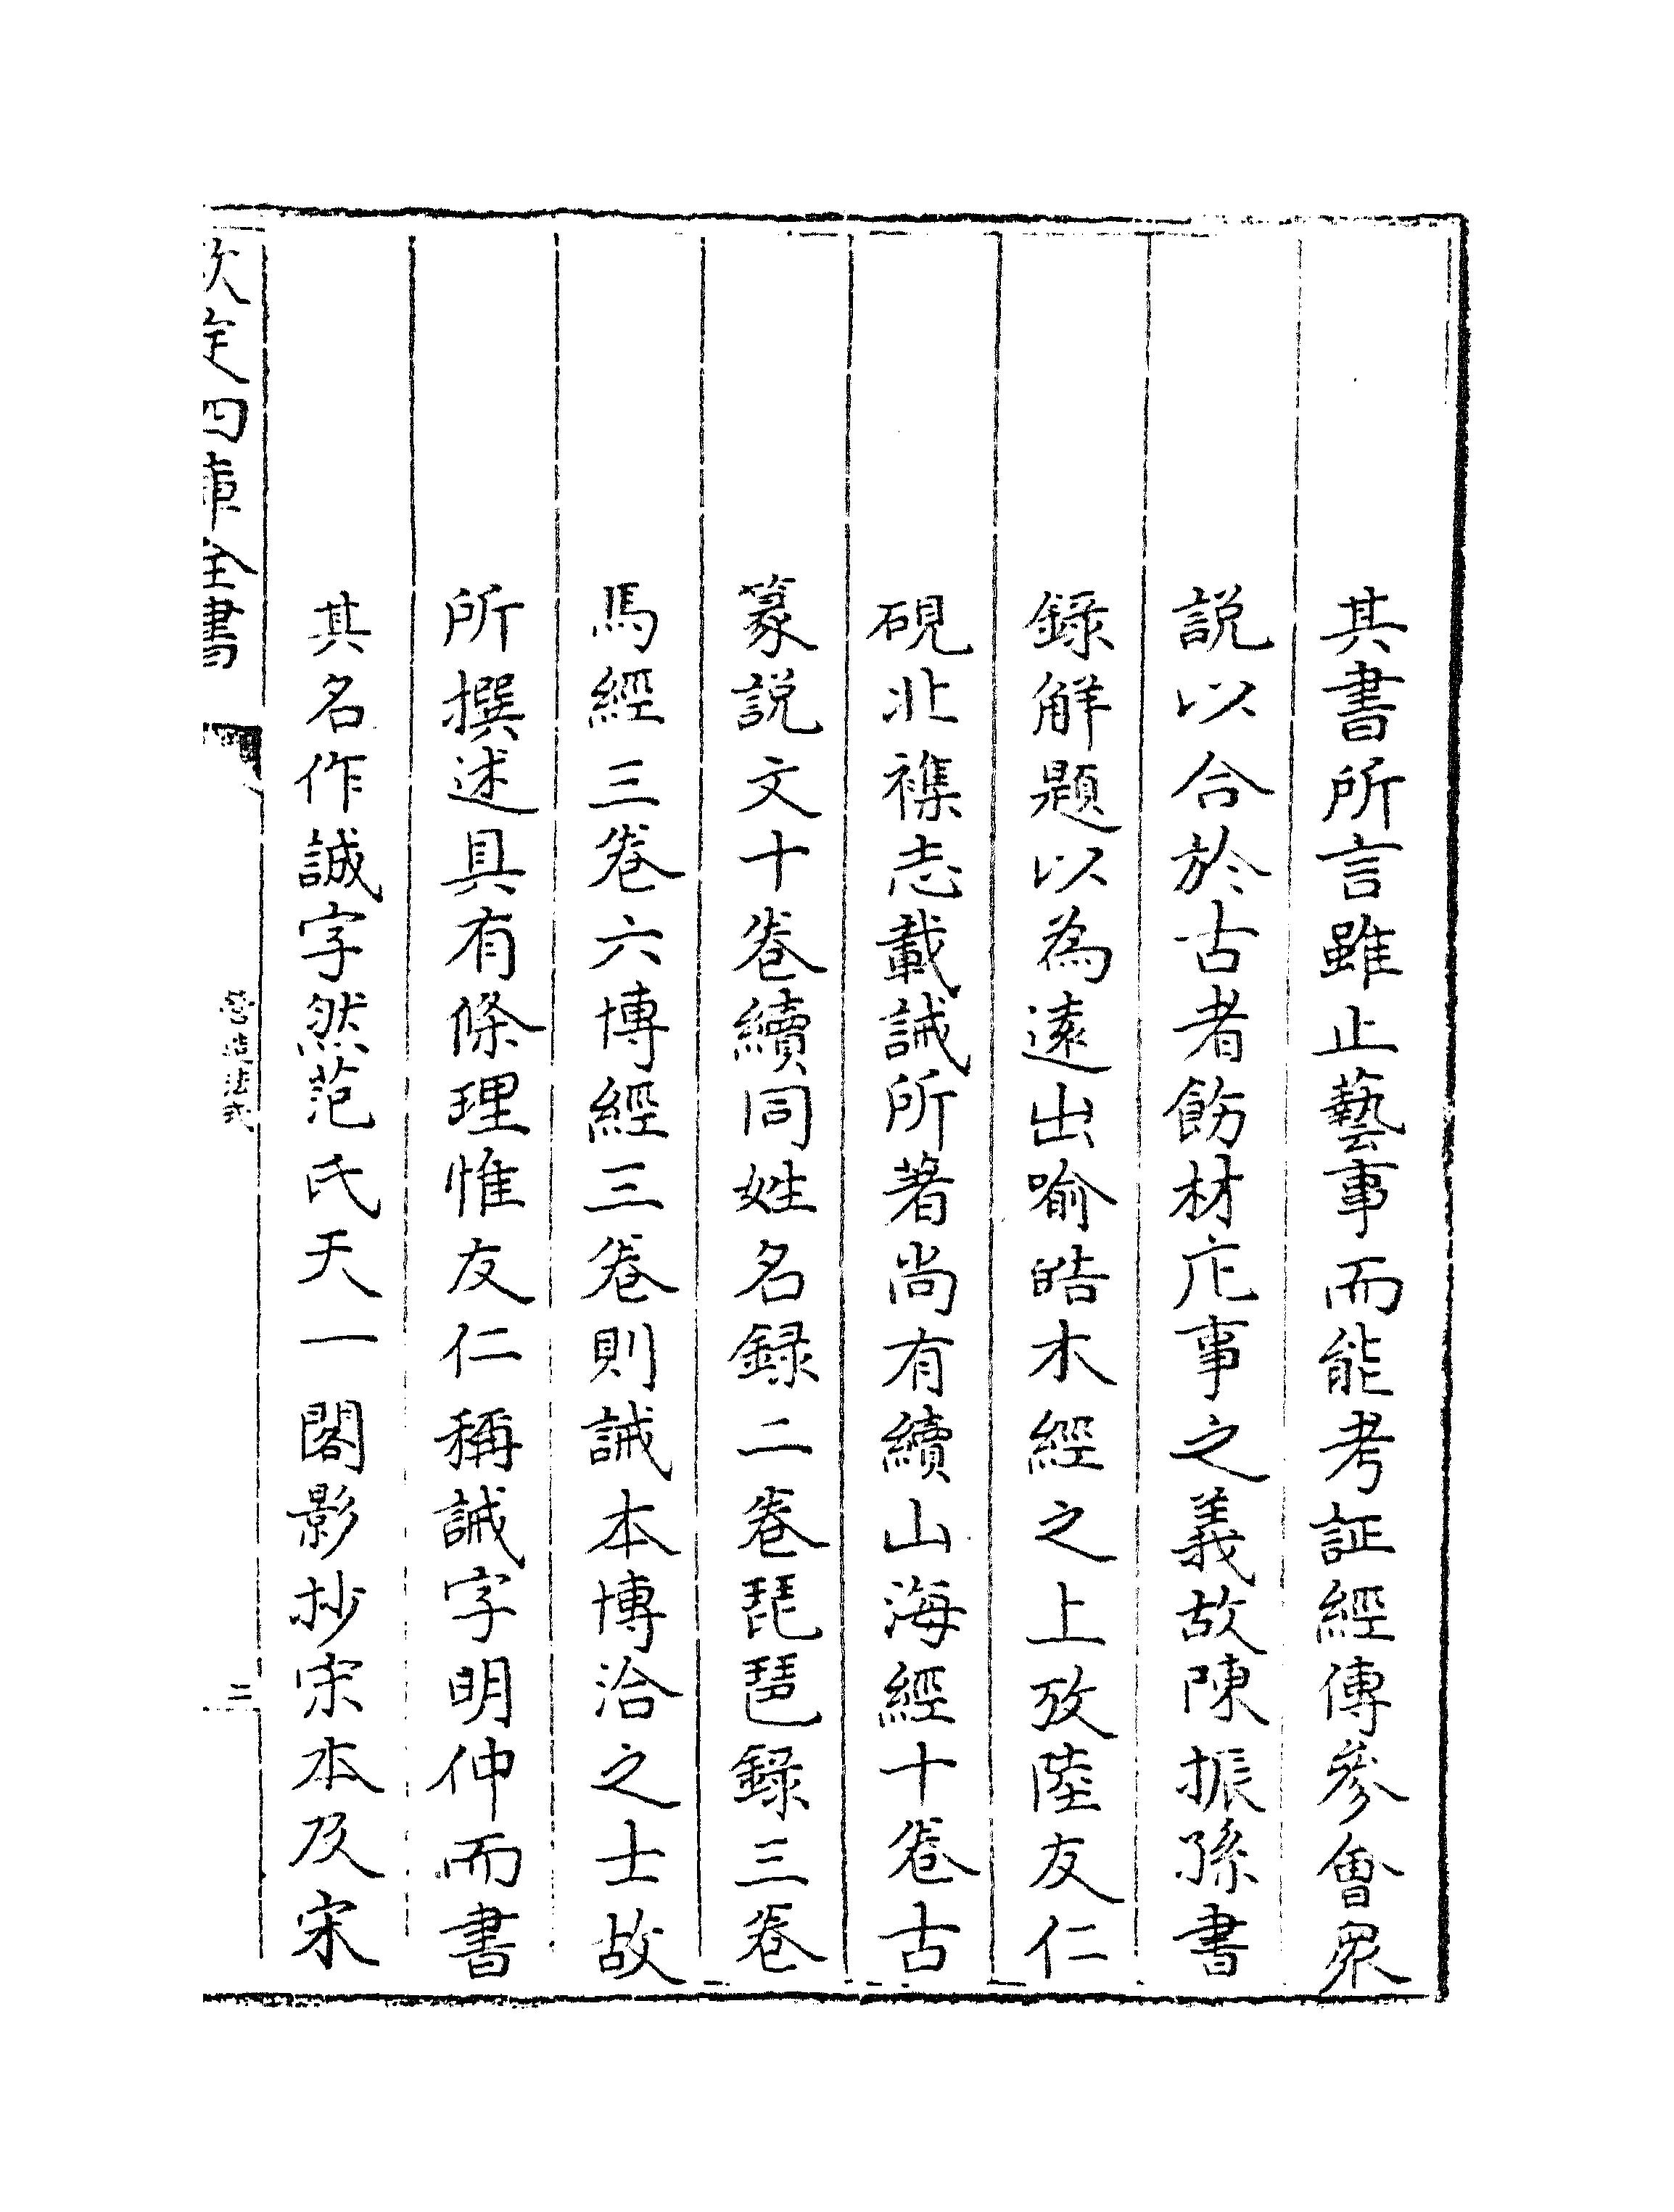 其書所言雖止藝事而能考証經傳參會衆
説以合於古者飭材庀事之義故陳振孫書
録解題以為遠出喻皓木經之上攷陸友仁
硯北襍志載誡所著尚有續山海經十卷古
篆説文十卷續同姓名録二卷琵琶録三卷
馬經三卷六博經三卷則誡本博洽之士故
所撰述具有條理惟友仁稱誡字明仲而書
其名作誠字然范氏天一閣影抄宋本及宋
欽定四庫全書
營造法式
三